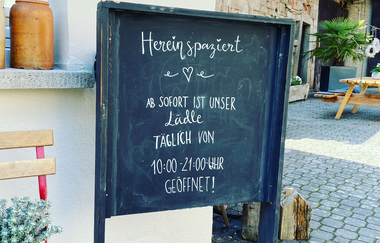 Hereinspaziert
AB SOFORT IST UNSER
Lädle
TÄGLICH VON
10:00-21:00 UHR
GEÖFFNET!